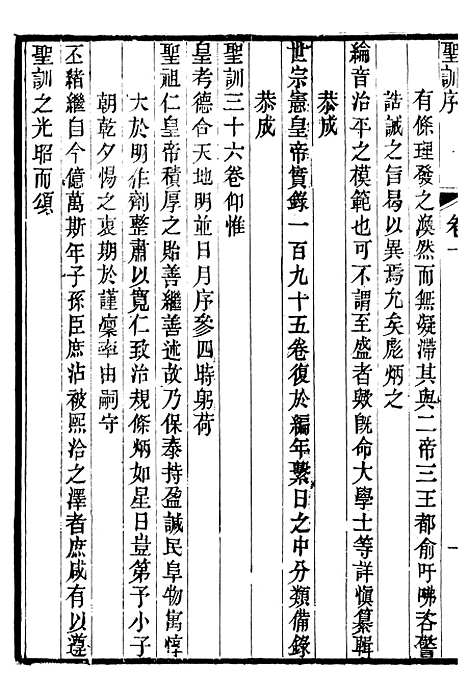 聖訓序　卷一　一
有條理發之渙然而無凝滯其與二帝三王都俞吁咈咨警
誥誡之旨曷以異焉允矣彪炳之
綸音治平之模範也可不謂至盛者歟旣命大學士等詳愼纂輯
恭成
世宗憲皇帝實錄一百九十五卷復於編年繫日之中分類備錄
恭成
聖訓三十六卷仰惟
皇考德合天地明並日月序參四時躬荷
聖祖仁皇帝積厚之貽善繼善述故乃保泰持盈諴民阜物寓惇
大於明作劑整肅以寬仁致治規條炳如星日豈第予小子
朝乾夕惕之衷期於謹凜率由嗣守
丕緒繼自今億萬斯年子孫臣庶沾被熙洽之澤者庶咸有以遵
聖訓之光昭而頌